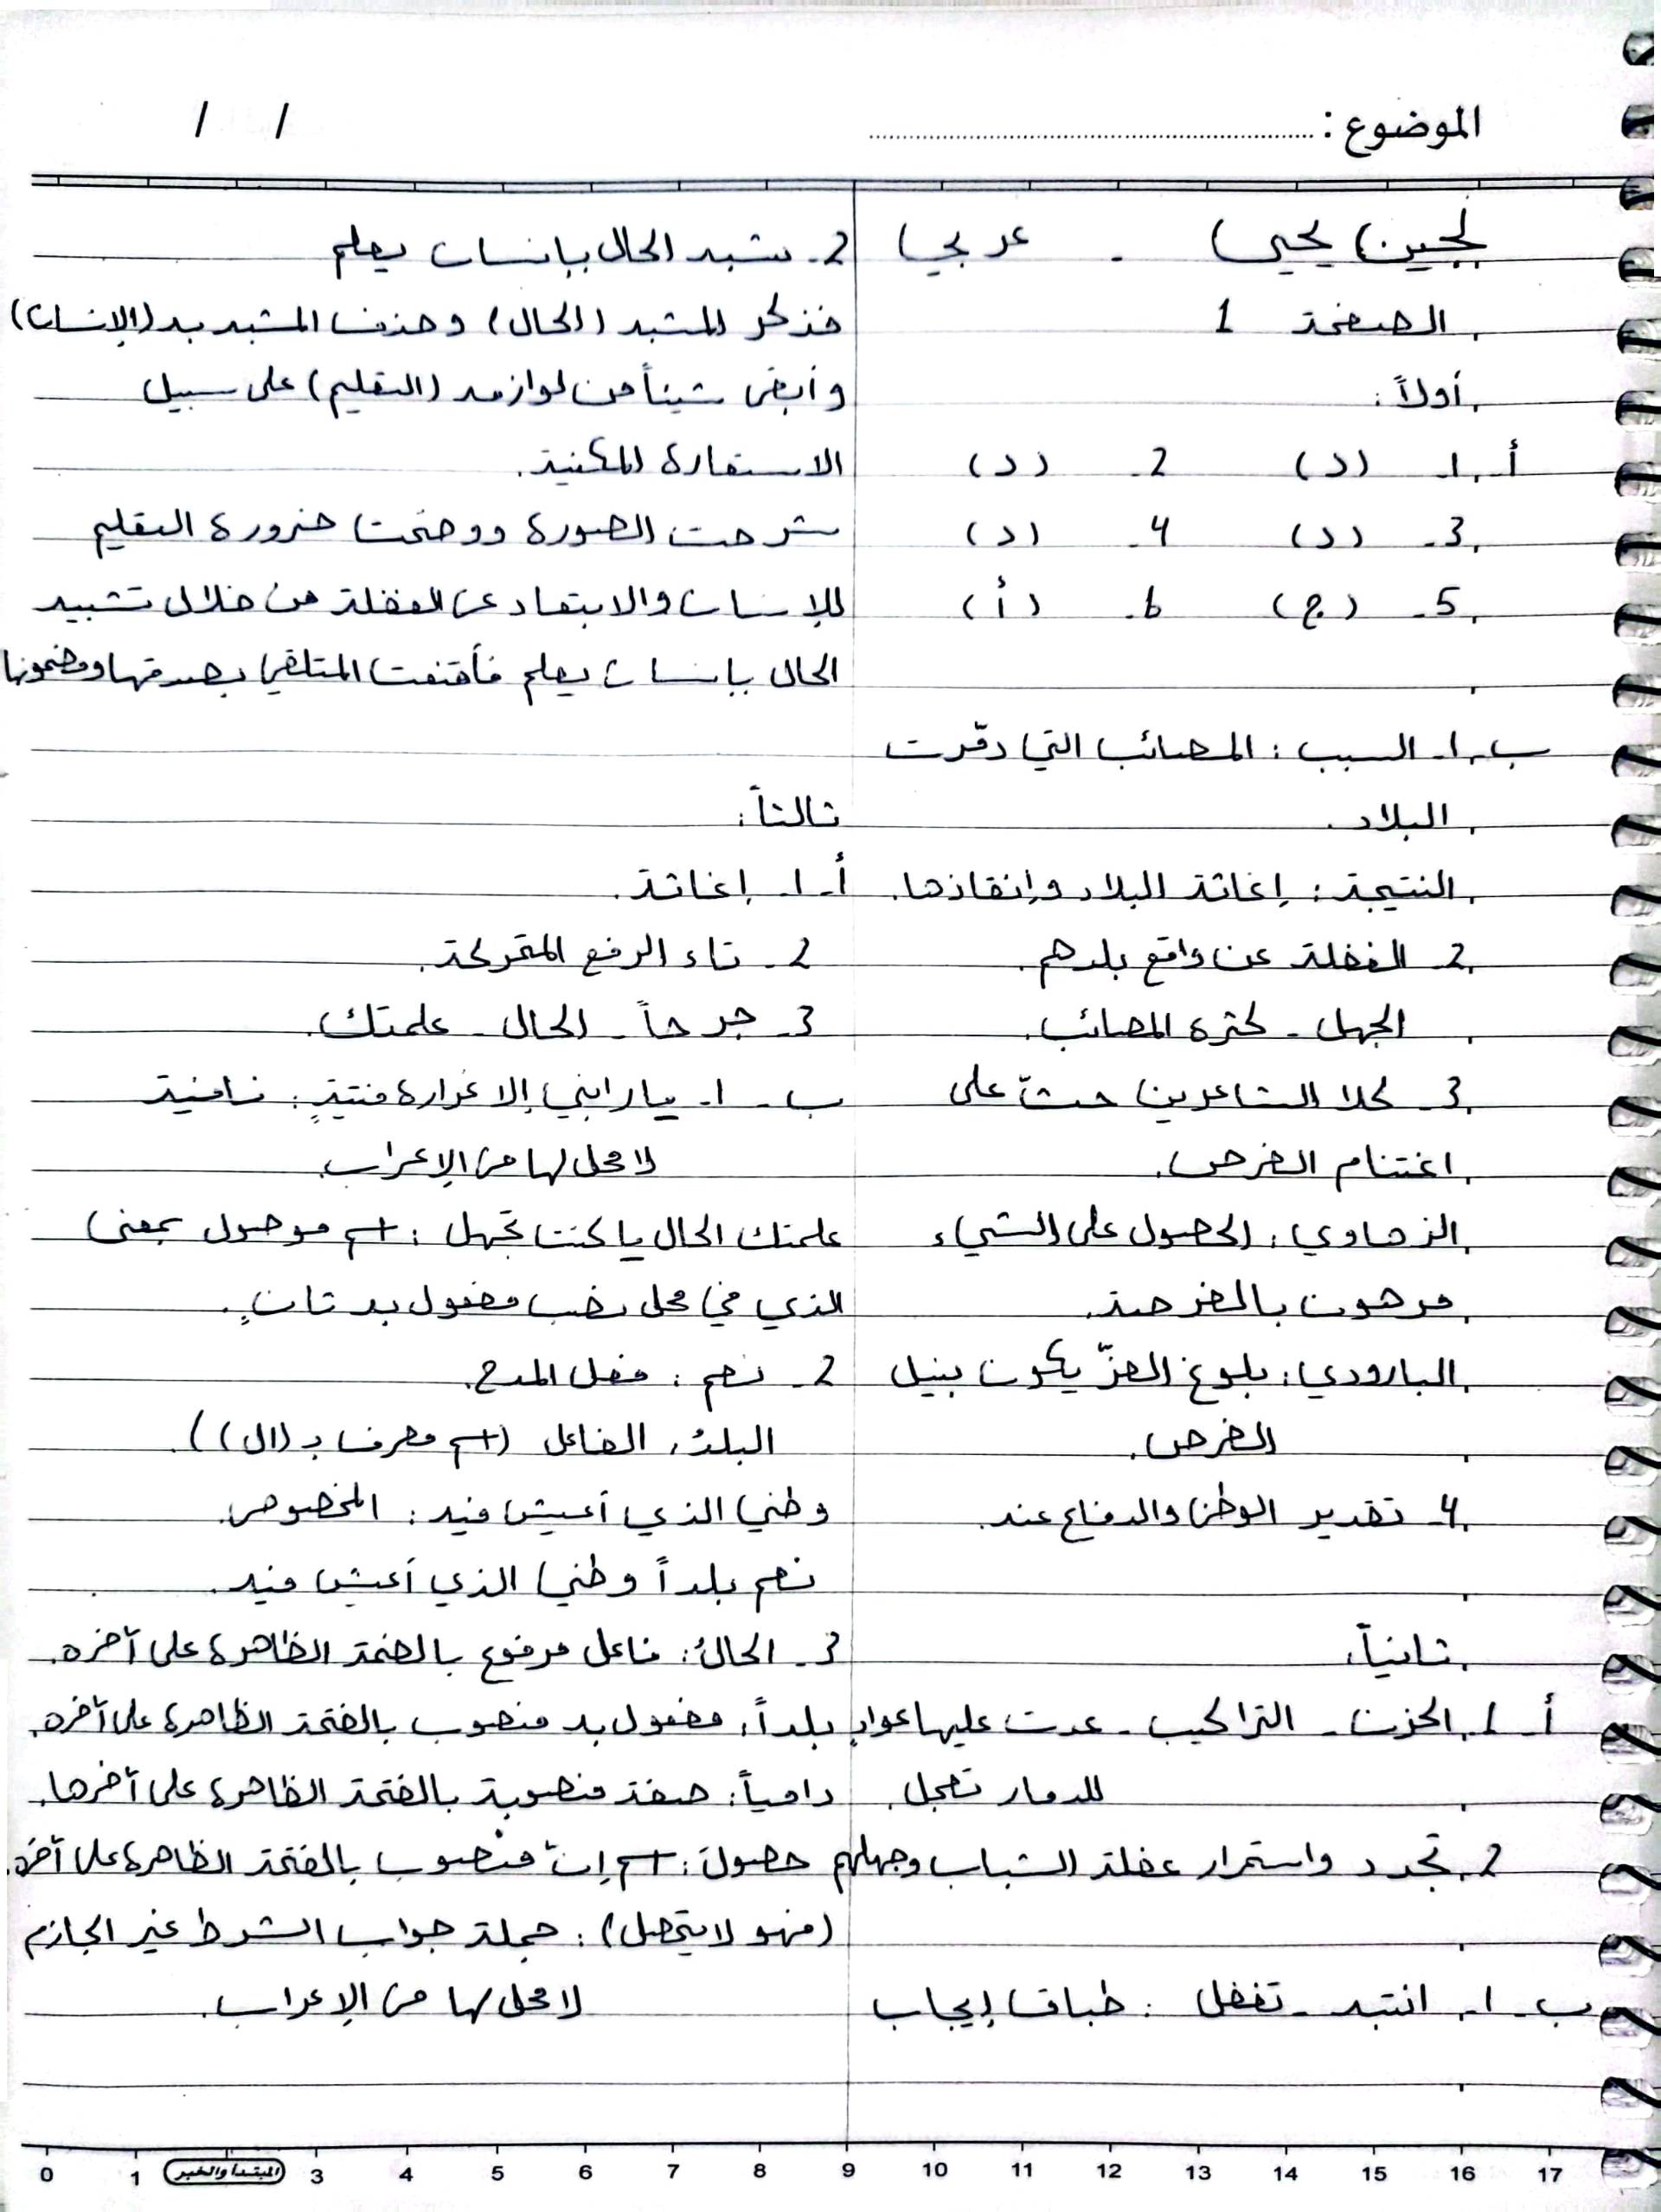 الموضوع :
/ /
لجين يحيى - عربي
الصفحة 1
أولاً:
أ- 1- (د) 2- (د)
3- (د) 4- (د)
5- (ج) 6- (أ)
ب- 1- السبب : المصائب التي دمّرت
البلاد.
النتيجة : إغاثة البلاد وإنقاذها.
2- الغفلة عن واقع بلدهم.
الجهل - كثرة المصائب.
3- كلا الشاعرين حثّ على
اغتنام الفرص.
الزهاوي : الحصول على الشيء
مرهون بالفرصة.
البارودي : بلوغ العزّ يكون بنيل
الفرص.
4- تقدير الوطن والدفاع عنه.
ثانياً:
أ- 1- الحزن - التراكيب - عدت عليها عوادٍ
للدمار تعجل.
2- تجدد واستمرار غفلة الشباب وجهلهم
ب- 1- انتبه - تغفل : طباق إيجاب
2- شبه الحال بإنسان يعلم
فذكر المشبه (الحال) وحذف المشبه به (الإنسان)
وأبقى شيئاً من لوازمه (التعليم) على سبيل
الاستعارة المكنية.
شرحت الصورة ووضحت ضرورة التعليم
للإنسان والابتعاد عن الغفلة من خلال تشبيه
الحال بإنسان يعلم فأقنعت المتلقي بصدقها ومضمونها
ثالثاً:
أ- 1- إغاثة.
2- تاء الرفع المتحركة.
3- جرحاً - الحال - علمتك.
ب- 1- ما رابني إلا غرارة فتيةٍ : نافية
لا محل لها من الإعراب
علمتك الحال ما كنت تجهل : اسم موصول بمعنى
الذي في محل نصب مفعول به ثانٍ.
2- نعم : فعل المدح.
البلدُ : الفاعل (اسم معرف بـ (ال)).
وطني الذي أعيش فيه : المخصوص.
نعم بلداً وطني الذي أعيش فيه.
3- الحالُ : فاعل مرفوع بالضمة الظاهرة على آخره.
بلداً : مفعول به منصوب بالفتحة الظاهرة على آخره.
دامياً : صفة منصوبة بالفتحة الظاهرة على آخرها.
حصولَ : اسم إنّ منصوب بالفتحة الظاهرة على آخره.
(فهو لا يتحصل) : جملة جواب الشرط غير الجازم
لا محل لها من الإعراب.
0 1 المبتدأ والخبر 3 4 5 6 7 8 9 10 11 12 13 14 15 16 17